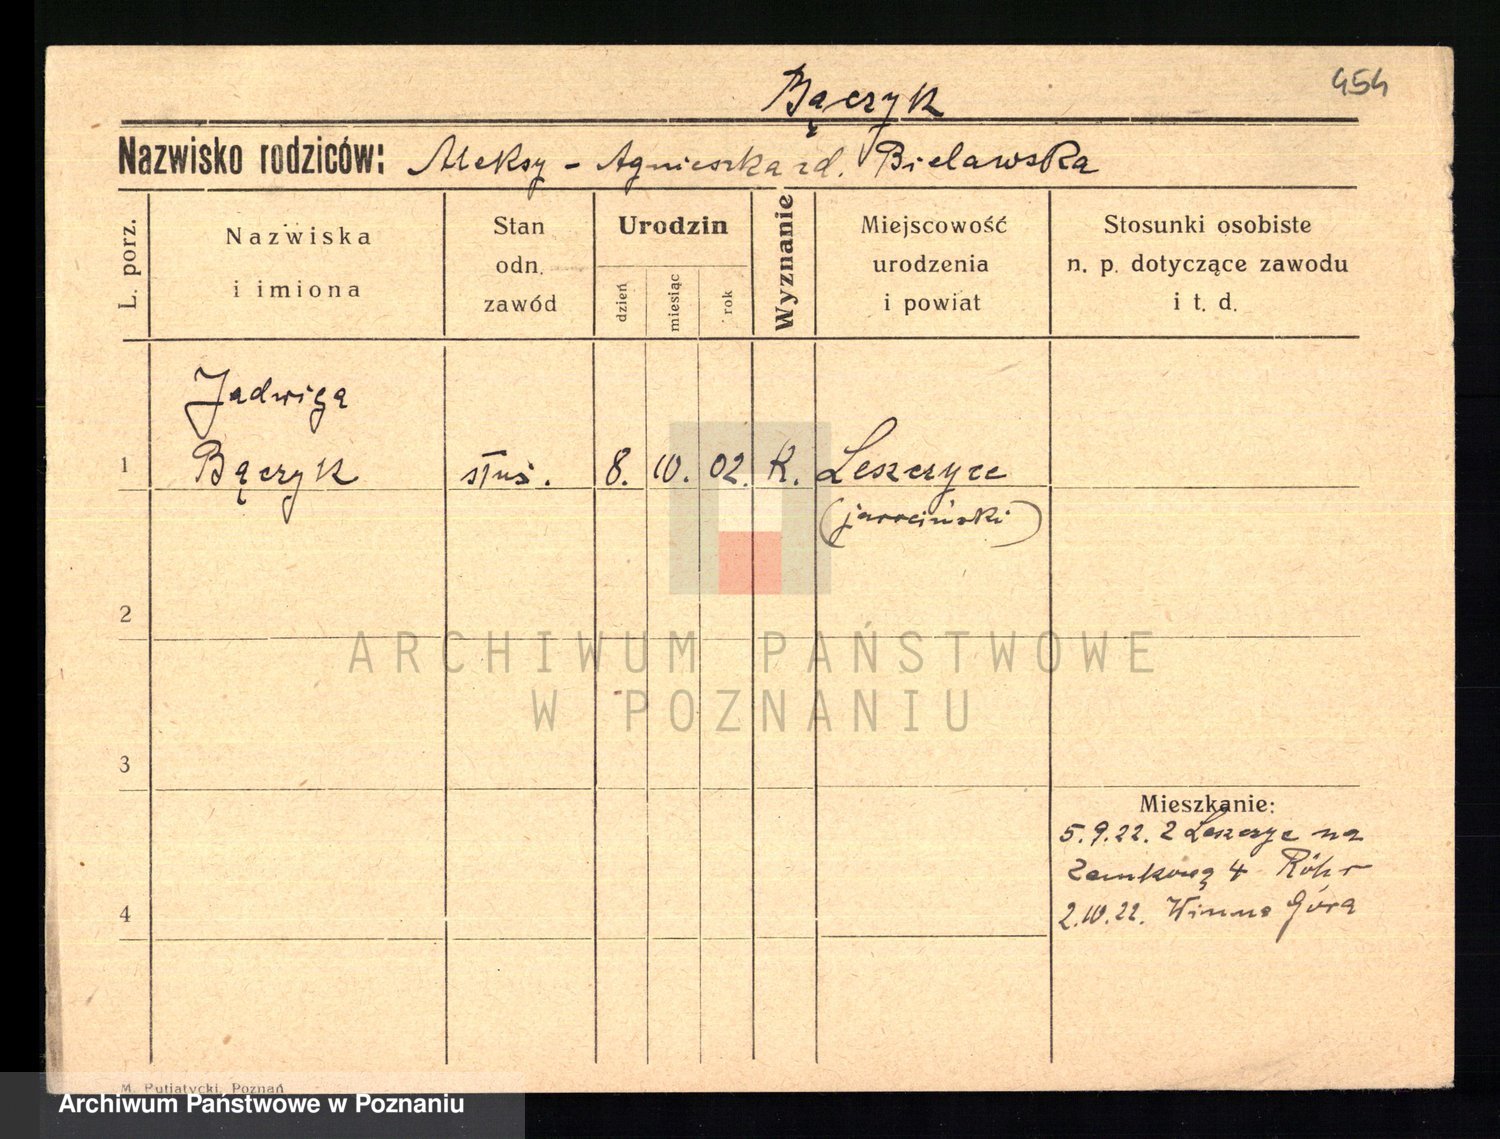 454
Bączyk
Nazwisko rodziców: Aleksy - Agnieszka zd. Bielawska
L. porz.
Nazwiska
i imiona
Stan
odn.
zawód
Urodzin
dzień
miesiąc
rok
Wyznanie
Miejscowość
urodzenia
i powiat
Stosunki osobiste
n. p. dotyczące zawodu
i t. d.
Jadwiga
1 Bączyk służ. 8. 10. 02. K. Leszczyce
(jarociński)
2
ARCHIWUM PAŃSTWOWE
W POZNANIU
3
Mieszkanie:
5.9.22. z Leszczyc na
Zamkową 4 Röhr
4 2.10.22. Winna Góra
M. Putiatycki, Poznań
Archiwum Państwowe w Poznaniu